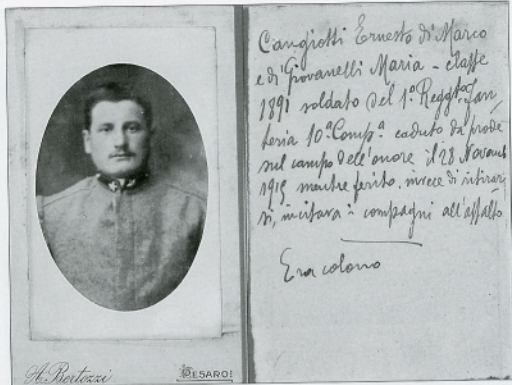 Cangiotti Ernesto di Marco
e di Giovanelli Maria - classe
1891 soldato del 1º Reggtº Fan
teria 10ª Compª caduto da prode
sul campo dell'onore il 28 Novemb
1915 mentre ferito, invece di ritirar
si, incitava i compagni all'assalto
Era colono
A. Bertozzi
PESARO